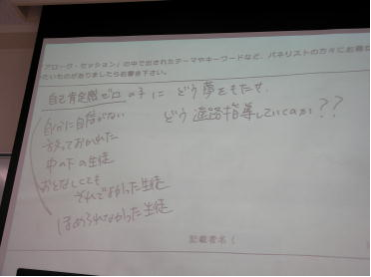 アローク・セッション」の中で出されたテーマやキーワードなど、パネリストの方々にお聞き
たいものがありましたらお書き下さい。
自己肯定感ゼロの子に どう夢をもたせ
どう進路指導していくのか??
自分に自信がない
うたっておかれた
中の下の生徒
おとなしくても
それでよかった生徒
ほめられなかった生徒
記載者名(